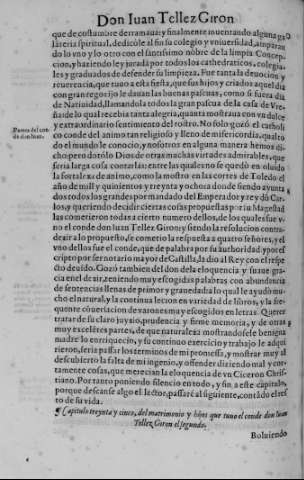 Don Iuan Tellez Giron
que de costumbre derramaua; y finalmente inuentando alguna ga
larteria spiritual, dedicole al su su colegio y vniuersidad, amparan
do lo vno y lo otro con el santissimo nõbre de la limpia Concep-
cion, y haziendo ley y jurada por todos los cathedraticos, colegia-
les y graduados de defender su limpieza. Fue tanta la deuocion y
reuerencia, que tuuo a esta fiesta, que sus hijos y criados aquel dia
con gran regozijo le dauan las buenas pascuas, como si fuera dia
de Natiuidad, llamandola todos la gran pascua de la casa de Vre-
ña de lo qual recebia tanta alegria, quanta mostraua con vn dulce
y extraordinario sentimiento del rostro. No solo gozò el catholi
co conde del animo tan religioso y lleno de misericordia, qual to
do el mundo le conocio, y nosotros en alguna manera hemos di-
cho pero dotòlo Dios de otras muchas virtudes admirables, que
seria larga cosa contarlas: entre las quales no se quedò en oluido
la fortaleza de animo, como la mostro en las cortes de Toledo el
año de mil y quinientos y treynta y ocho a donde siendo ayunta
dos todos los grandes por mandado del Emperador y rey dõ Car-
los, y queriendo decidir ciertas cosas propuestas por su Magestad
las cometieron todas a cierto numero dellos, de los quales fue v-
no el conde don Iuan Tellez Giron: y siendo la resolucion contra-
dezir a lo propuesto, se cometio la respuesta a quatro señores, y el
vno dellos fue el conde, que de palabra por su authoridad y por es
cripto por ser notario mayor de Castilla, la dio al Rey con el respe
cto deuido. Gozò tambien del don de la eloquencia y suaue gra-
cia en el dezir, teniendo muy escogidas palabras con abundancia
de sentencias llenas de primor y grauedad a lo qual le ayudò mu-
cho el natural, y la continua lection en variedad de libros, y la fre-
quente conuersacion de varones muy escogidos en letras. Querer
tratar de su claro juyzio, prudencia y firme memoria, y de otras
muy excelẽtes partes, de que naturaleza mostrandosele benigna
madre lo enriquecio, y su continuo exercicio y trabajo le adqui
rieron, seria passar los terminos de mi promessa, y mostrar muy al
descubierto la falta de mi ingenio, y offender diziendo mal y cor-
tamente cosas, que merecian la eloquencia de vn Ciceron Chris-
tiano. Por tanto poniendo silencio en todo, y fin, a este capitulo,
porque descanse algo el lector, passarè al siguiente, contãdo el res
to de su vida.
¶ Capitulo treynta y cinco, del matrimonio y hijos que tuuo el conde don Iuan
Tellez Giron el segundo.
Boluiendo